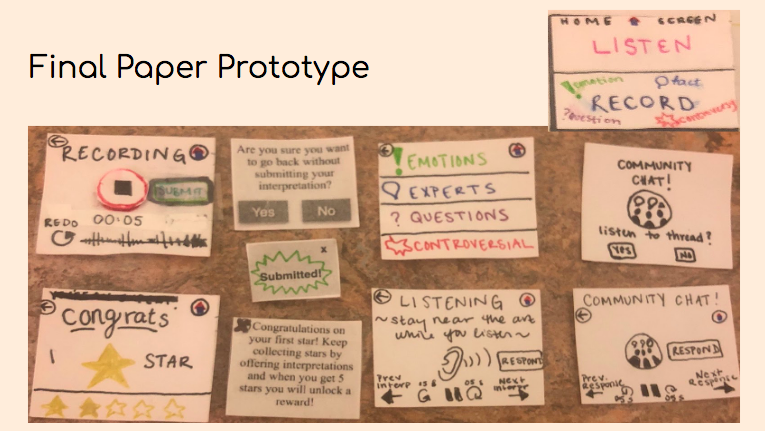 Final Paper Prototype
HOME SCREEN
LISTEN
emotion
fact
RECORD
?question
controversy
RECORDING
SUBMIT
REDO
00:05
Are you sure you want
to go back without
submitting your
interpretation?
Yes No
x
Submitted!
EMOTIONS
EXPERTS
? QUESTIONS
CONTROVERSIAL
COMMUNITY
CHAT!
listen to thread?
YES NO
Congrats
1 STAR
Congratulations on
your first star! Keep
collecting stars by
offering interpretations
and when you get 5
stars you will unlock a
reward!
LISTENING
~stay near the art
while you listen~
RESPOND
Prev Interp
Next Interp
COMMUNITY CHAT!
RESPOND
Prev. Response
Next Response